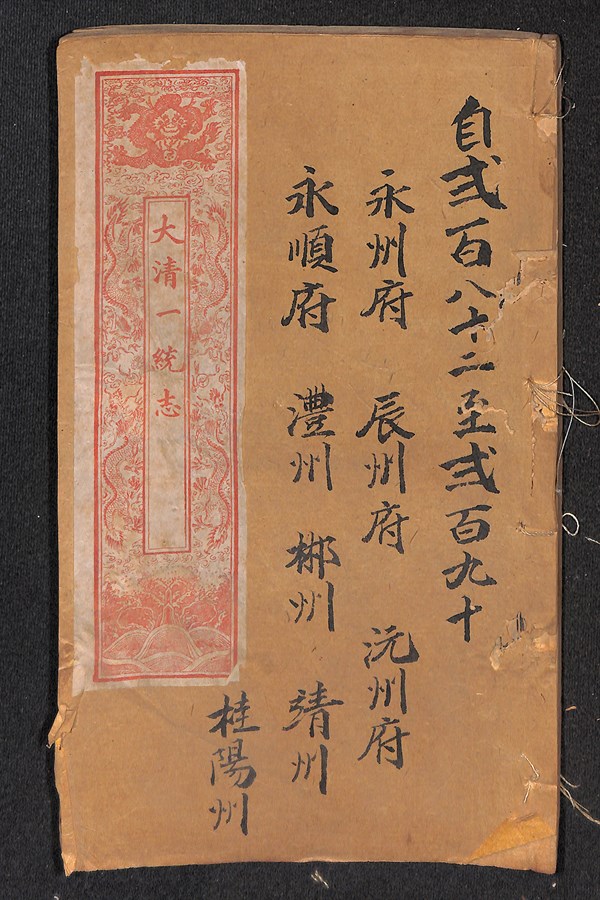 自弐百八十二至弐百九十
永州府 辰州府 沅州府
永順府 澧州 郴州 靖州
桂陽州
大清一統志